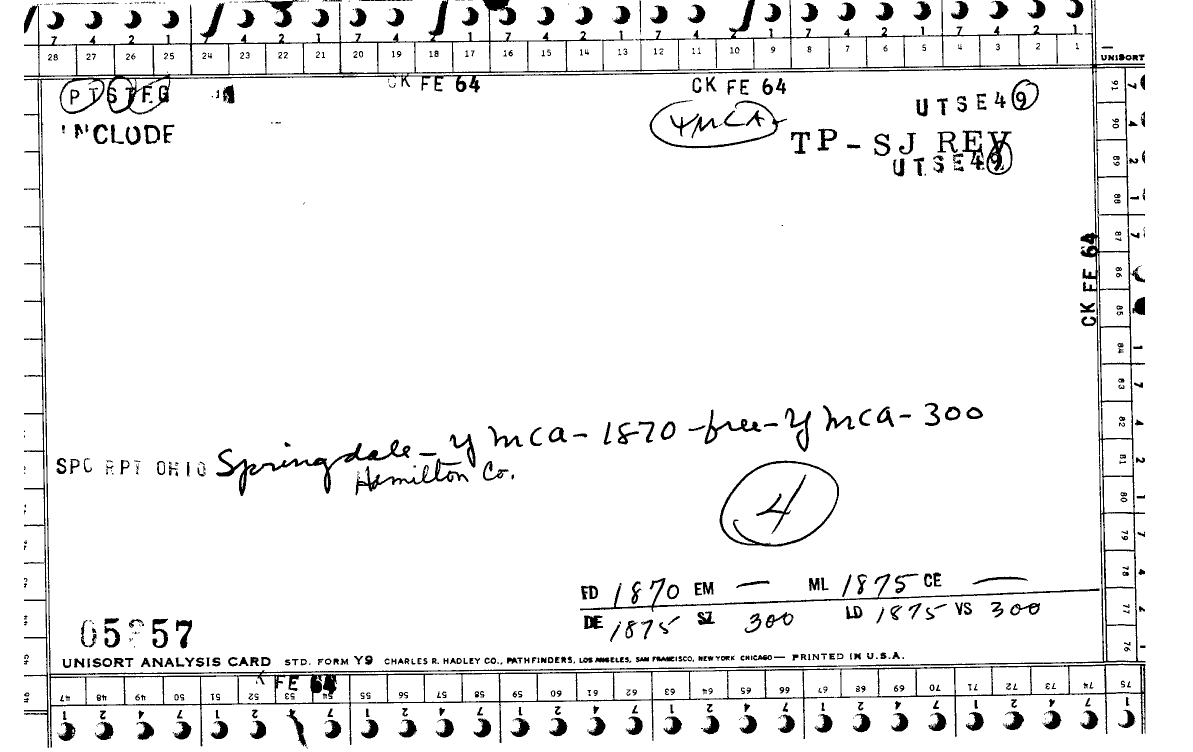 7 4 2 1 7 4 2 1 7 4 2 1 7 4 2 1 7 4 2 1 7 4 2 1 7 4 2 1
28 27 26 25 24 23 22 21 20 19 18 17 16 15 14 13 12 11 10 9 8 7 6 5 4 3 2 1
UNISORT
CK FE 64 CK FE 64
PTSTFG UTSE49
INCLUDE YMCA
TP-SJ REV
UTSE49
91 90 89 88 87 86 85 84 83 82 81 80 79 78 77 76
CK FE 64
Springdale - YMCA - 1870 - free - YMCA - 300
SPC RPT OHIO
Hamilton Co.
4
FD 1870 EM — ML 1875 CE —
DE 1875 SZ 300 LD 1875 VS 300
UNISORT ANALYSIS CARD STD. FORM Y9 CHARLES R. HADLEY CO., PATHFINDERS, LOS ANGELES, SAN FRANCISCO, NEW YORK CHICAGO — PRINTED IN U.S.A.
K FE 64
47 48 49 50 51 52 53 54 55 56 57 58 59 60 61 62 63 64 65 66 67 68 69 70 71 72 73 74 75